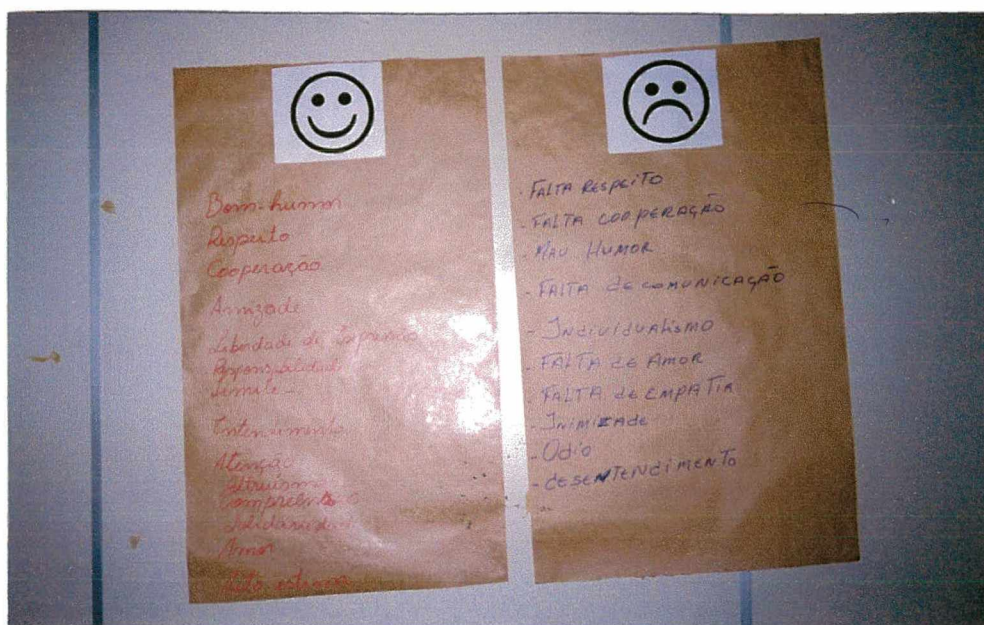 Bom-humor
Respeito
Cooperação
Amizade
Liberdade de Expressão
Responsabilidade
Limite
Entendimento
Atenção
Altruísmo
Compreensão
Solidariedade
Amor
Auto estima
- FALTA RESPEITO
- FALTA COOPERAÇÃO
- MAU HUMOR
- FALTA de COMUNICAÇÃO
- INdividuALismo
- FALTA de AMOR
- FALTA de EMPATIA
- INIMIZAde
- Odio
- desENTENdiMENTo